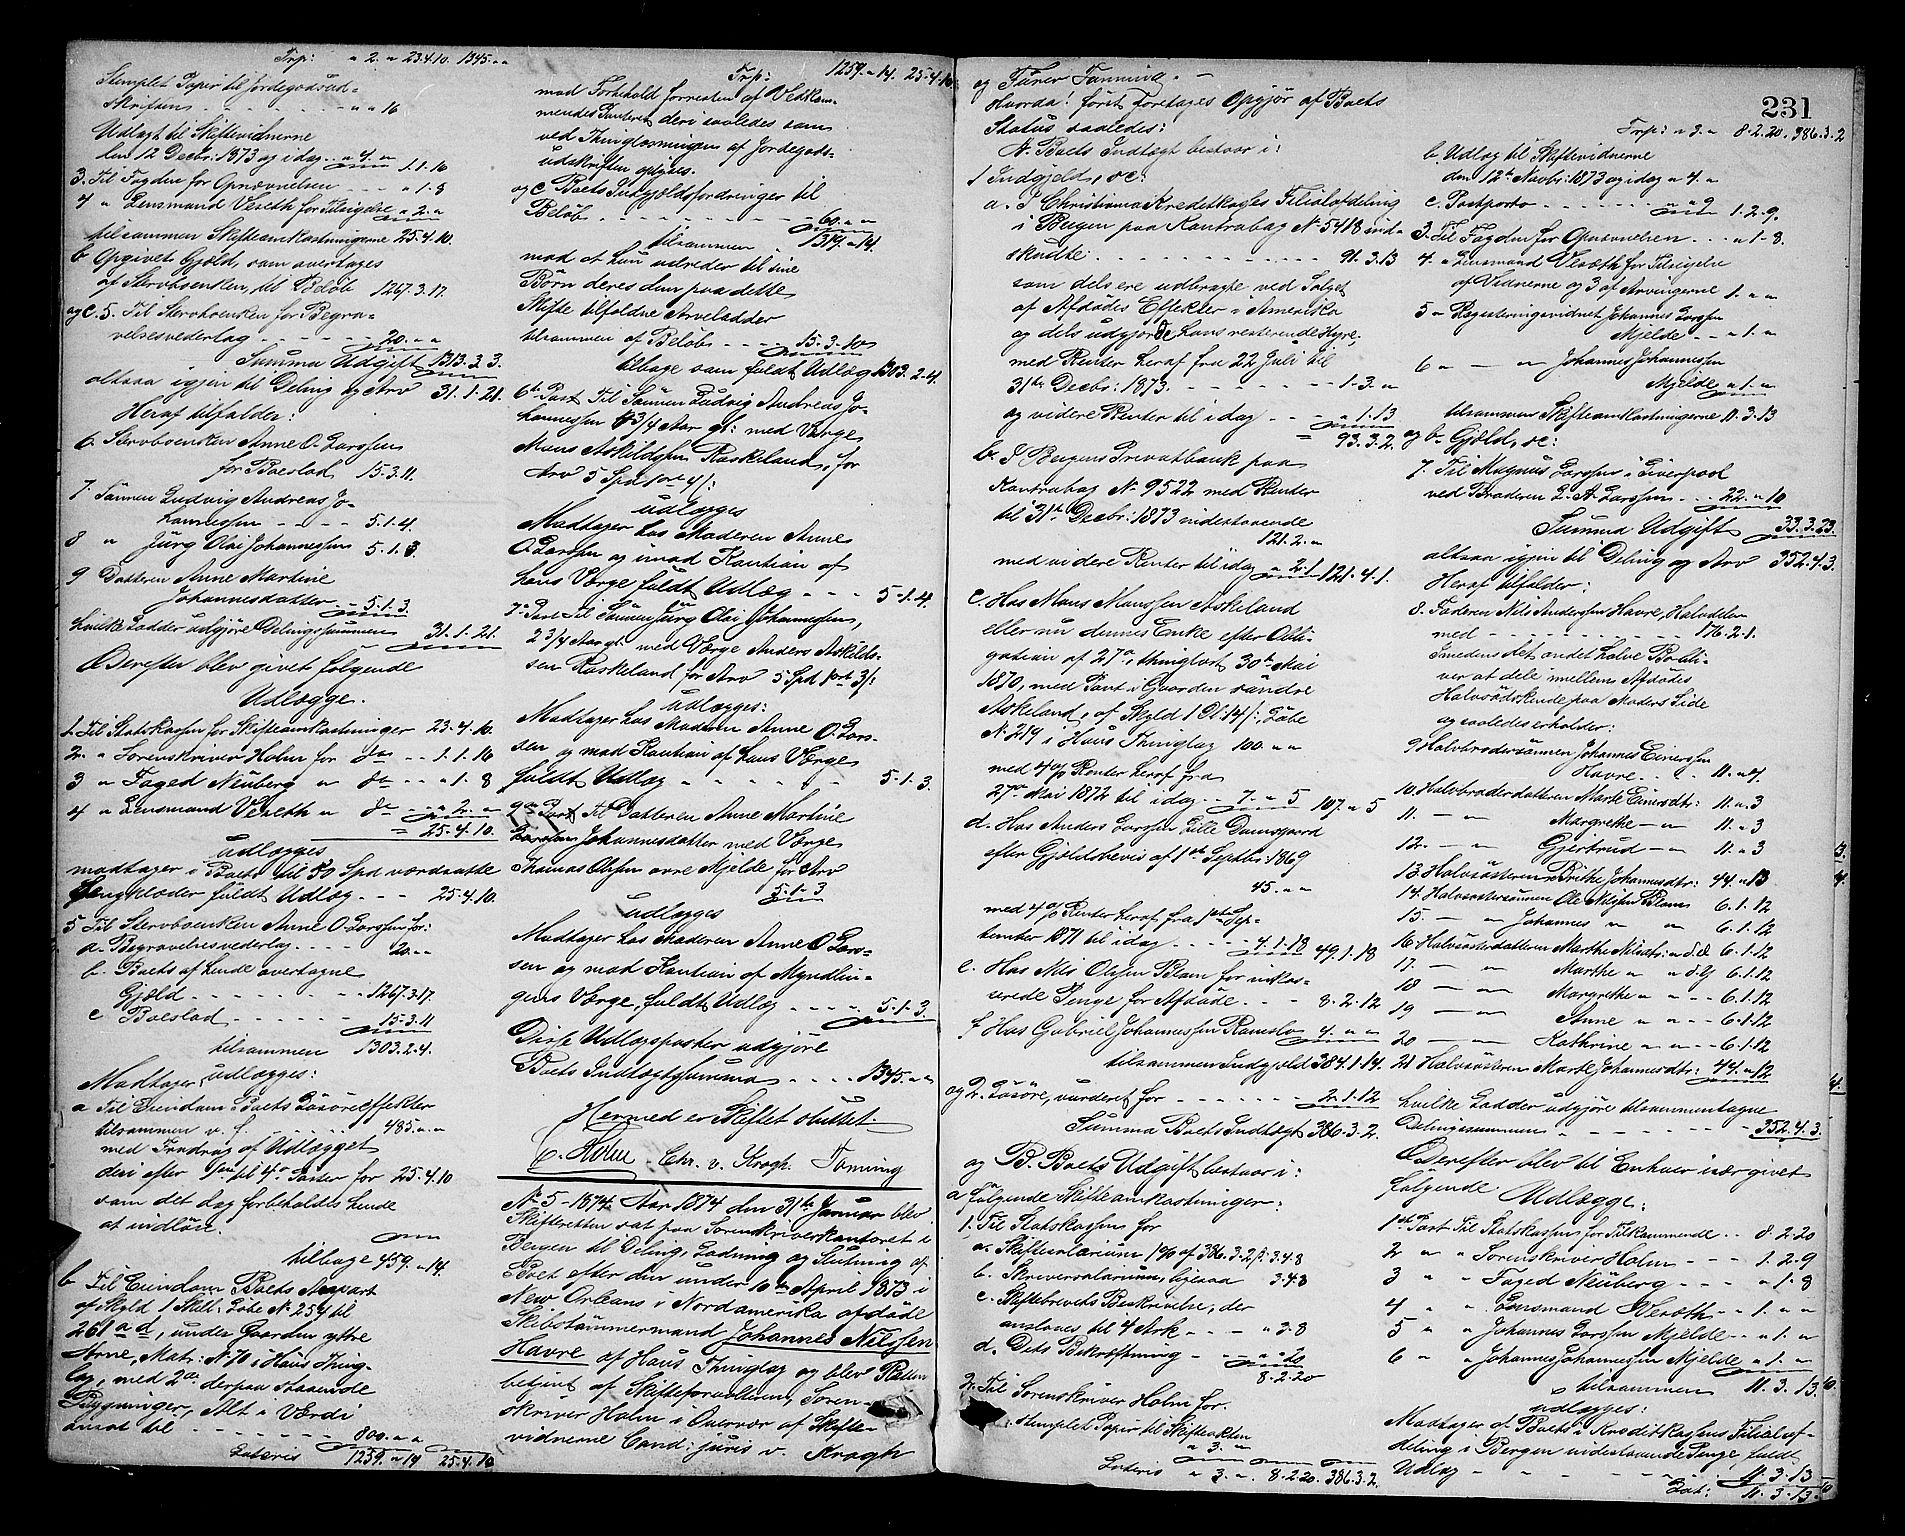 Trp: " 2. " 23.4.10. 1345. " "
Stemplet Papir til Jordegodsud-
skriften - - - - - " " 16
Udlagt til Skiftevidnerne
den 12 Decbr: 1873 og i dag " 4. " 1.1.16
3. Til Fogden for Opnævnelsen - - - " 1. 8
4 " Lensmand Veseth for Tilsigelse " 2. "
tilsammen Skifteomkostningerne 25.4.10.
b Opgivet Gjæld, som overtages
af Stervboenken, det Beløb 1267.3.17.
og c. 5. Til Stervboenken for Begra-
velsesvederlag - - - - - 20. " "
Summa Udgift 1313.3.3.
altsaa igjen til Deling og Arv 31.1.21.
Heraf tilfalder:
6. Stervboenken Anne O. Larssen
for Boeslod 15.3.11.
7 Sønnen Ludvig Andreas Jo-
hannessen - - - - 5.1.4.
8 " Jürg Olai Johannessen 5.1.3.
9 Datteren Anne Martine
Johannesdatter - 5.1.3.
hvilke Lodder udgjøre Delingssummen 31.1.21.
Derefter blev givet følgende
Udlægge.
1. Til Statskassen for Skifteomkostninger 23.4.10.
2. " Sorenskriver Holm for do - - 1.1.16
3 " Foged Neuberg " do - - " 1. 8
4 " Lensmand Veseth " do - - " 2. "
= 25.4.10.
udlægges
modtager i Boets til 50 Spd værdsatte
Gangklæder fuldt Udlæg - - - 25.4.10.
5 Til Stervboenken Anne O. Larssen for:
a. Begravelsesvederlag - - - - 20. " "
b. Boets af hende overtagne
Gjæld - - - - - - - 1267.3.17.
c Boeslod - - - - - 15.3.11
tilsammen 1303.2.4.
udlægges:
Modtager
a Til Eiendom Boets Løsøreeffekter
tilsammen v. f. - - - - - 485. " "
med Fradrag af Udlægget
deri efter 1ste til 4de Poster for 25.4.10
som det dog forbeholdes hende
at indløse.
tilbage 459. " 14.
b Til Eiendom Boets Anpart
af Skyld 1 Skill: Løbe No 254 til
261 a d, under Gaarden ytre
Arne, Matr: No 70 i Haus Thing-
lag, med 2de derpaa staaende
Bygninger, Alt i Værdi
ansat til - - - - - - - 800. " "
Lateris 1259. " 14 25.4.10
Trp: 1259. " 14. 25.4.10
mod Forhold forresten af Vedkom-
mendes Panteret deri saaledes som
ved Thinglæsningen af Jordegods-
udskriften oplyses.
og c Boets Indgjældsfordringer til
Beløb - - - - - - - - - 60. " "
tilsammen 1319. " 14.
mod at hun udreder til sine
Børn deres dem paa dette
Skifte tilfaldne Arvelodder
tilsammen af Beløb - - - - 15.3.10
tilbage som fuldt Udlæg 1303.2.4.
6te Post Til Sønnen Ludvig Andreas Jo-
hannessen 4 3/4 Aar gl: med Værge
Mons Askildsen Raskeland, for
Arv 5 Spd 1 ort 4 s:
udlægges
Modtager hos Moderen Anne
O. Larssen og imod Kaution af
hans Værge fuldt Udlæg - - - 5.1.4.
7de Post Til Sønnen Jürg Olai Johannessen,
2 3/4 Aar gl: med Værge Anders Askilds-
sen Raskeland for Arv 5 Spd 1 ort 3 s:
udlægges:
Modtager hos Moderen Anne O. Lars-
sen og mod Kaution af hans Værge
fuldt Udlæg - - - - - - - 5.1.3.
9de Post Til Datteren Anne Martine
Johannesdatter med Værge
Thomas Olsen øvre Mjelde for Arv
5.1.3
udlægges
Modtager hos Moderen Anne O. Lars-
sen og mod Kaution af Myndlin-
gens Værge, fuldt Udlæg - - - - 5.1.3.
Disse Udlægsposter udgjøre
Boets Indtægtssumma - - - - 1345. " "
Hermed er Skiftet sluttet.
C. Holm Chr. v. Krogh. Tønning
No 5 - 1874. Aar 1874 den 31te Januar blev
Skifteretten sat paa Sorenskriverkontoret i
Bergen til Deling, Lodning og Slutning af
Boet efter den under 10de April 1873 i
New Orleans i Nordamerika afdøde
Skibstømmermand Johannes Nilssen
Havre af Haus Thinglag og blev Retten
betjent af Skifteforvalteren, Soren-
skriver Holm i Overvær af Skifte-
vidnerne Cand: juris v. Krogh
231
og Fører Tønning. -
Hvorda! først foretages Opgjør af Boets
Status saaledes:
A. Boets Indtægt bestaar i:
1 Indgjeld, sc:
a. I Christiania Kreditkasses Filialafdeling
i Bergen paa Kontrabog No 5418 ind-
skudte - - - - - - - - - 91.3.13
som dels ere udbragte ved Salget
af Afdødes Effekter i Amerika
og dels udgjør hans resterende Hyre,
med Renter heraf fra 22 Juli til
31te Decbr: 1873 - - - - - - - 1.3. "
og videre Renter til i dag - - " 1.13
= 93.3.2.
b. I Bergens Privatbank paa
Kontrabog No 9522 med Renter
til 31te Decbr: 1873 indestaaende
121.2. "
med videre Renter til i dag " 2.1 121.4.1.
c. Hos Mons Monssen Askeland
eller nu dennes Enke efter Obli-
gation af 27de, thinglæst 30te Mai
1870, med Pant i Gaarden søndre
Askeland, af Skyld 1 Dl: 14 s: Løbe
No 219 i Haus Thinglag 100. " "
med 4 % Renter heraf fra
27de Mai 1872 til i dag - 7. " 5 107. " 5
d. Hos Anders Larssen Lille Damsgaard
efter Gjældsbevis af 1ste Septbr: 1869
45. " "
med 4 % Renter heraf fra 1ste Sep-
tember 1871 til i dag - - - - 4.1.18 49.1.18
e. Hos Nils Olsen Blom for inkas-
serede Penge for Afdøde - - - 8.2.12
f Hos Gabriel Johannessen Romslo 4. " "
tilsammen Indgjæld 384.1.14.
og 2. Løsøre, vurderet for - - - - - - 2.1.12
Summa Boets Indtægt 386.3.2.
og B. Boets Udgift bestaar i:
a følgende Skifteomkostninger:
1. Til Statskassen for
a. Skiftesalarium 1 % af 386.3.2, s: 3.4.8
b. Skriversalarium, ligesaa 3.4.8
c. Skiftebrevets Beskrivelse, der
ansloves til 4 Ark - - - " 3.8
d. Dets Bekræftning - - " " 20
8.2.20
2. Til Sorenskriver Holm for
a. stemplet Papir til Skifteakten
" 3. "
Lateris " 3. ". 8.2.20. 386.3.2.
Trp: " 3. " 8.2.20. 386.3.2
b. Udlæg til Skiftevidnerne
den 12te Novbr: 1873 og i dag " 4. "
c. Postporto - - - - - - " " 9 1.2.9.
3. Til Fogden for Opnævnelsen - - " 1. 8.
4. " Lensmand Veseth for Tilsigelse
af Vidnerne og 3 af Arvingerne 1. " "
5 " Registreringsvidnet Johannes Larssen
Mjelde - - " 1. "
6 - " Johannes Johannessen
Mjelde " 1. "
tilsammen Skifteomkostningerne 11.3.13
og b. Gjæld, sc:
7. Til Magnus Larssen i Liverpool
ved Broderen L. A. Larssen - - - 22. " 10
Summa Udgift 33.3.23.
altsaa igjen til Deling og Arv 352.4.3.
Heraf tilfalder:
8. Faderen Nils Anderssen Havre, Halvdelen
med - - - - - - - - 176.2.1.
Imedens det andet halve Bo bli-
ver at dele mellem Afdødes
Halvsødskende paa Moders Side
og saaledes erholder:
9 Halvbrodersønnen Johannes Einerssen
Havre - - 11. " 4.
10. Halvbroderdatteren Marte Einersdtr: 11. " 3
11. - " Margrethe - " 11. " 3
12. - " Gjertrud - " 11. " 3
13. Halvsøsteren Brithe Johannesdtr: 44. " 13
14. Halvsøstersønnen Ole Nilsen Blom 6.1.12
15. - " Johannes " " 6.1.12
16. Halvsøsterdatteren Marthe Nilsdtr: " d.E 6.1.12
17. - " Marthe " " d.y 6.1.12
18 - " Margrethe " " - 6.1.12
19 - " Anne " " - 6.1.12
20 - " Kathrine " " - 6.1.12
21 Halvsøsteren Marte Johannesdtr: 44. " 12
hvilke Lodder udgjøre tilsammentagne
Delingssummen - - - - - - - - 352.4.3.
Derefter blev til Enhver især givet
følgende Udlægge:
1ste Post Til Statskassen for Tilkommende - - 8.2.20
2 " " Sorenskriver Holm - - - - 1.2.9
3 " " Foged Neuberg - - - - " 1. 8
4 " " Lensmand Veseth - - 1. " "
5 " " Johannes Larssen Mjelde - - " 1. "
6 " " Johannes Johannessen Mjelde " 1. "
tilsammen 11.3.13.
udlægges:
Modtager af Boets i Kreditkassens Filialaf-
deling i Bergen indestaaende Penge, fuldt
Udlæg - - - - - - - - 11.3.13
Lat: 11.3.13.